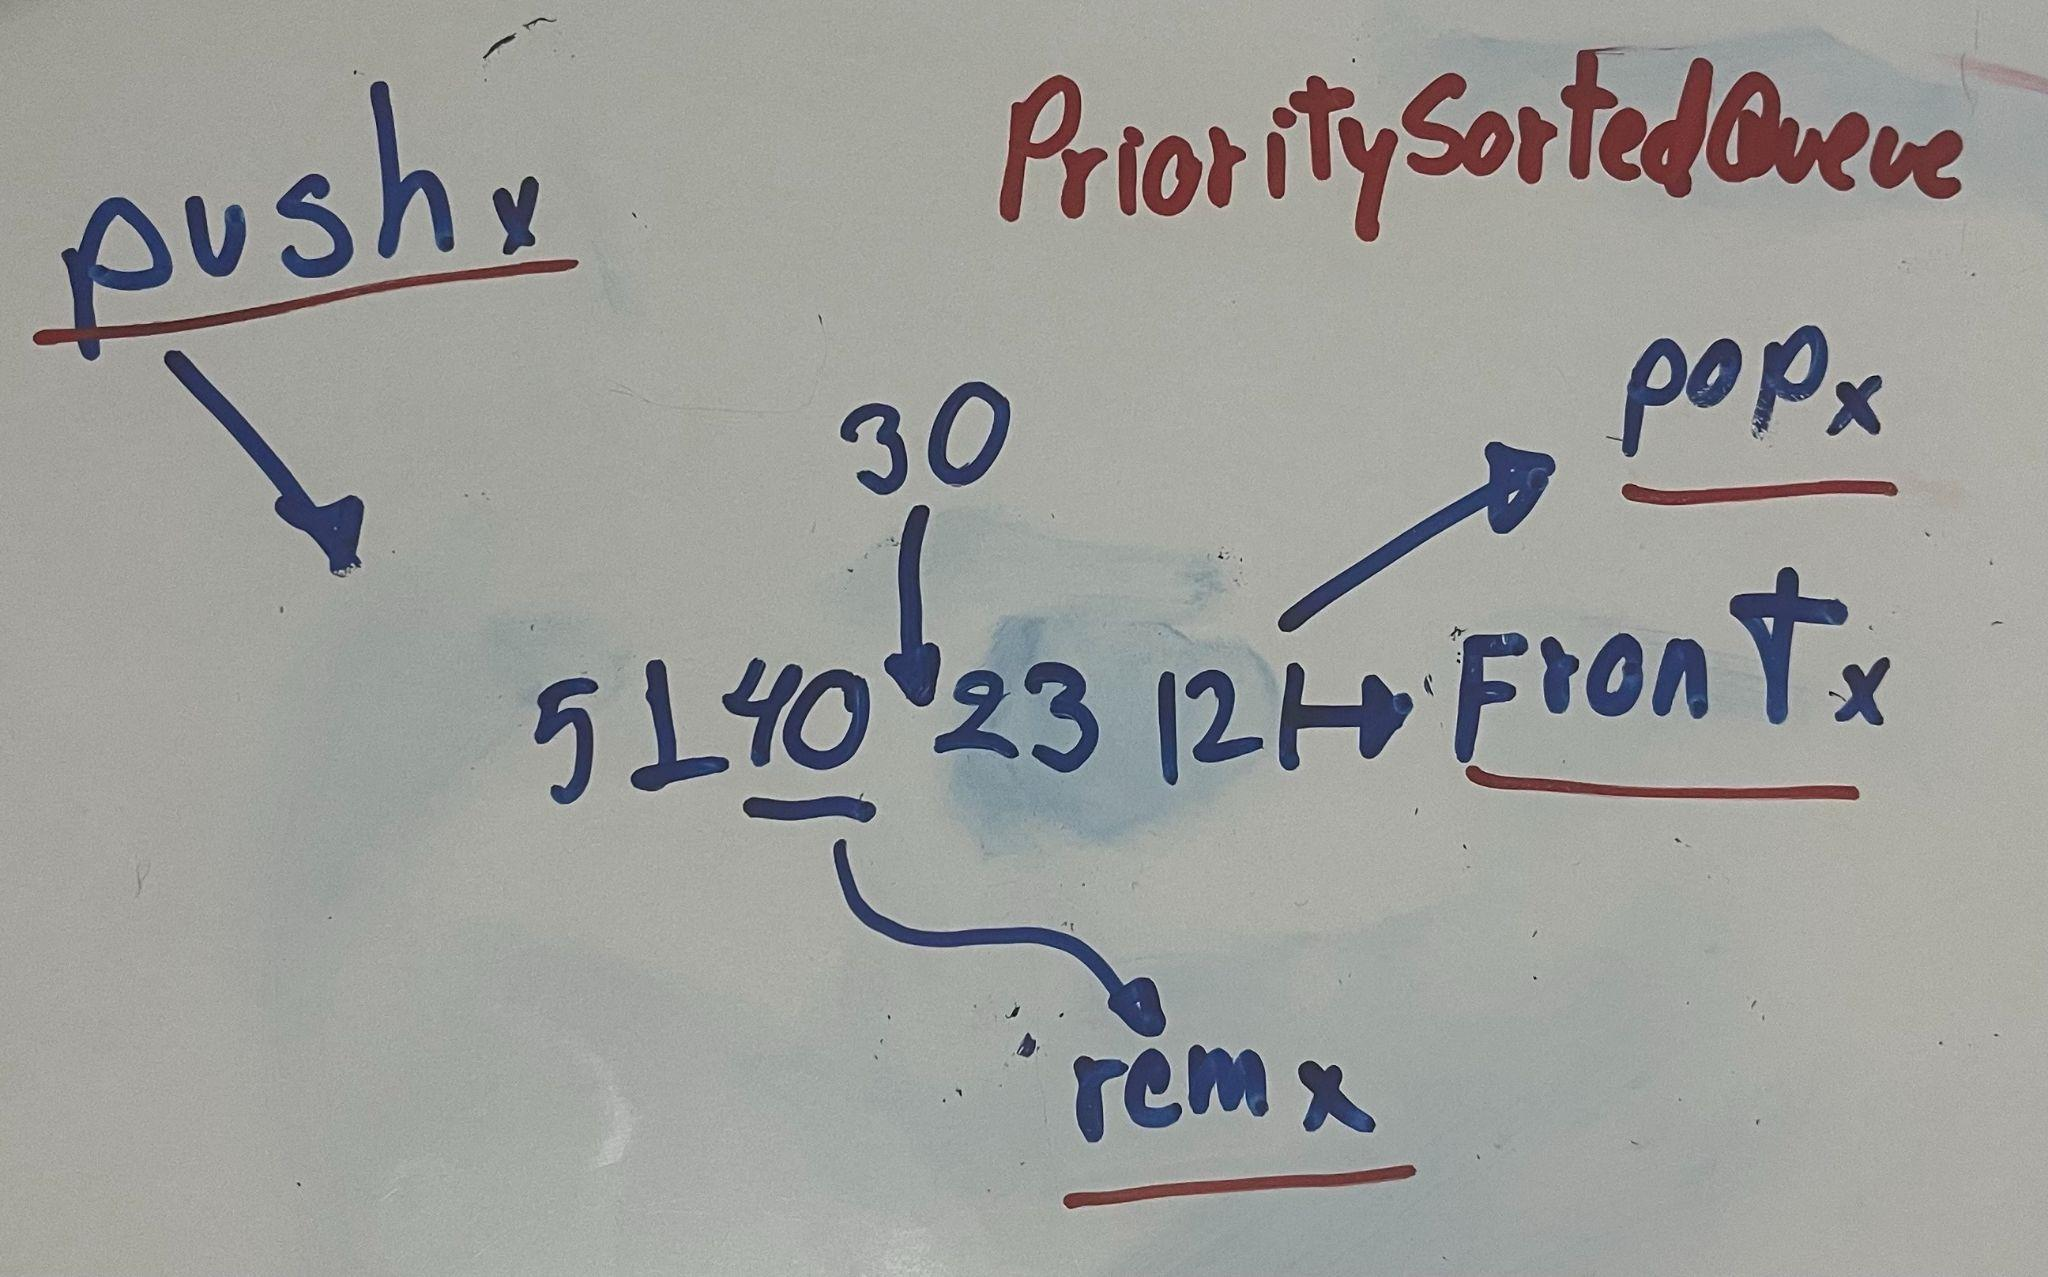 PrioritySortedQueue
push x
pop x
30
51 40 23 12 Front x
rem x